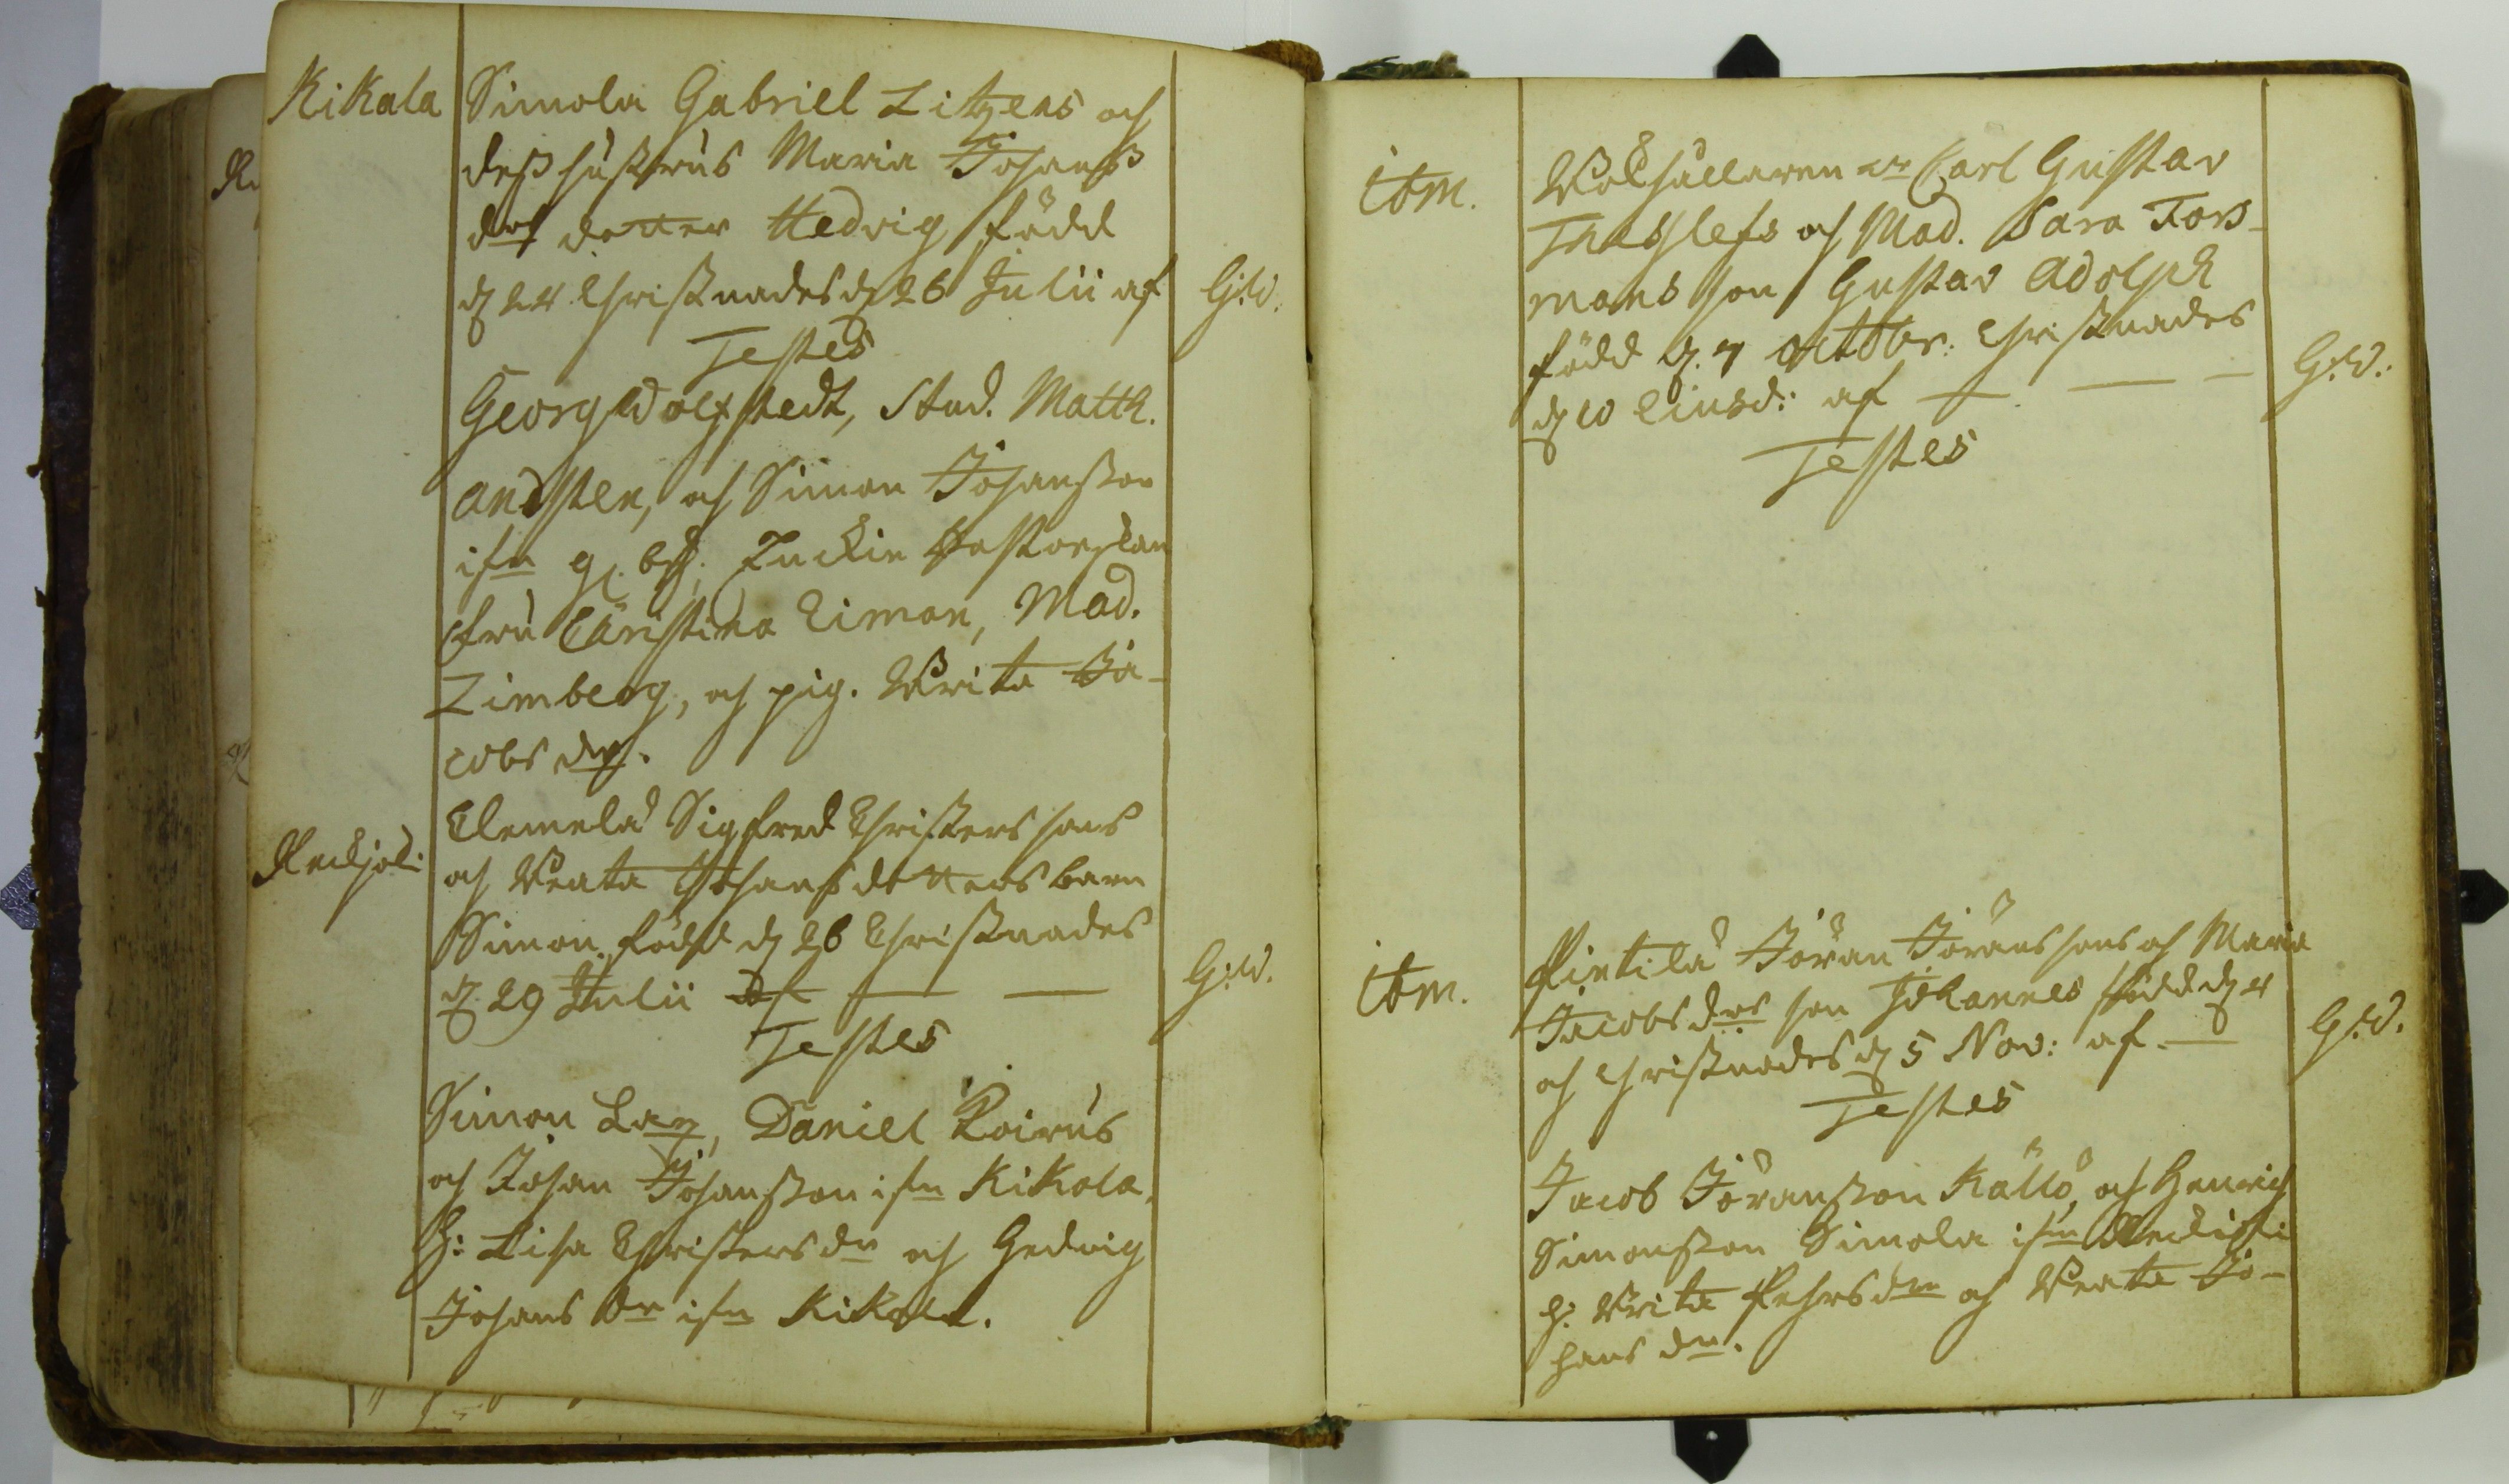 Kikala
Simola Gabriel Litzens och
dess hustrus Maria Johanss
drs dotter Hedvig född
d 24 Christnades d 26 Julii af
G:W.
Testes
Georg Wolfstedt, Stud. Matth.
andsten, och Simon Johansson
ifrn
fru Christina Eimon, Mad.
Zimberg, och pig. Brita Ja-
cobs dr.
Clemelä Sigfred Christers sons
och Beata Johans dotters barn
Simon född d 26 Christnades
d. 29 Julii af
G:W.
Testes
Simon Larss, Daniel Koirus
och Johan Johansson ifrn Kikola.
H: Lisa Christersdr och Hedvig
Johans dr ifrn Kikola.
ibm.
Bokhållaren Hr Carl Gustav
Thesslefs och Mad. Sara Fors-
mans son Gustav Adolph
född d. 7 octobr: Christnades
d 10 Eiusd: af
G:W.
Testes
ibm.
Pintilä Jöran Jöranssons och Maria
Jacobs drs son Johannes född d 4
och Christnades d 5 Nov: af
G:W.
Testes
Jacob Jöransson Källö, och Henrich
Simonsson Simola ifrn
h: Brita Pehrsdr och Beata Jo-
hans dr.